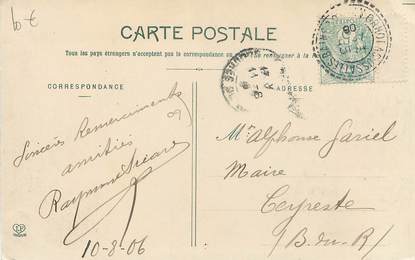 10 €
CARTE POSTALE
Tous les pays étrangers n'acceptent pas la correspondance au
se renseigner à la
CORRESPONDANCE
ADRESSE
Sincères Remerciements
amitiés
Raymond
10-8-06
Mr Alphonse Gariel
Maire
Ceyreste
(B. du R.)